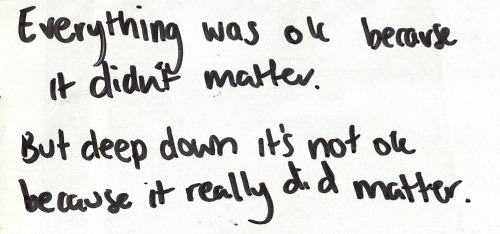 Everything was ok because
it didn't matter.
But deep down it's not ok
because it really did matter.